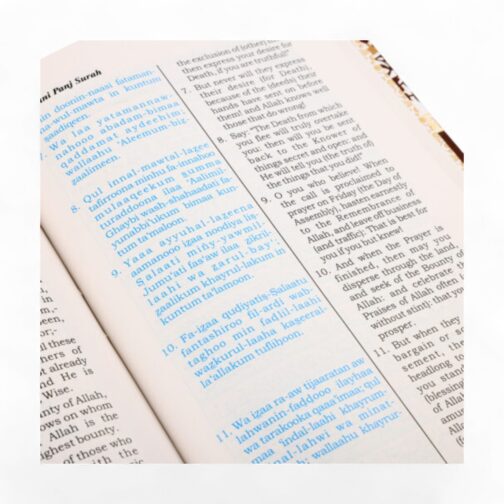 ni Panj Surah
doonin-naasi fataman-
na-wul-mawta in kuntum
saadiqeen.
7. Wa laa yatamannaw-
nahooo abadam-bimaa
qaddamat aydeehim;
wallaahu 'Aleemum-biz-
zaalimeen.
8. Qul innal-mawtal-lazee
tafirroona minhu fa-innahoo
mulaaqeekum summa
turaddoona ilaa 'Aalimil-
Ghaybi wash-shahaadati fa-
yunabbi'ukum bimaa kun-
tum ta'maloon.
9. Yaaa ayyuhal-lazeena
aamanooo izaa noodiya lis-
Salaati miñy-yawmil-
Jumu'ati fas'aw ilaa zikril-
laahi wa zarul-bay';
zaalikum khayrul-lakum in
kuntum ta'lamoon.
10. Fa-izaa qudiyatis-Salaatu
fantashiroo fil-ardi wab-
taghoo min fadlil-laahi
wazkurul-laaha kaseeral-
la'allakum tuflihoon.
11. Wa izaa ra-aw tijaaratan aw
lahwanin-faddooo ilayhaa
wa tarakooka qaaa'imaa; qul
maa 'indal-laahi khayrum-
minal-lahwi wa minat-
wallaahu khayrur-
the exclusion of (other) men,
then express your desire for
Death, if you are truthful!"
7. But never will they express
their desire (for Death),
because of the (deeds) their
hands have sent on before
them! and Allah knows well
those that do wrong!
8. Say: "The Death from which
you flee will truly overtake
you: then will you be sent
back to the Knower of
things secret and open: and
He will tell you (the truth of)
the things that you did!"
9. O you who believe! When
the call is proclaimed to
prayer on Friday (the Day of
Assembly), hasten earnestly
to the Remembrance of
Allah, and leave off business
(and traffic): That is best for
you if you but knew!
10. And when the Prayer is
finished, then may you
disperse through the land,
and seek of the Bounty of
Allah: and celebrate the
Praises of Allah often (and
without stint): that you may
prosper.
11. But when they
bargain or so
sement, the
headlong to
you stand
(blessing
of Allah
amu
of
(f
these
ners of
ot already
nd He is
Wise.
unty of Allah,
ows on whom
Allah is the
ighest bounty.
of those who
with the